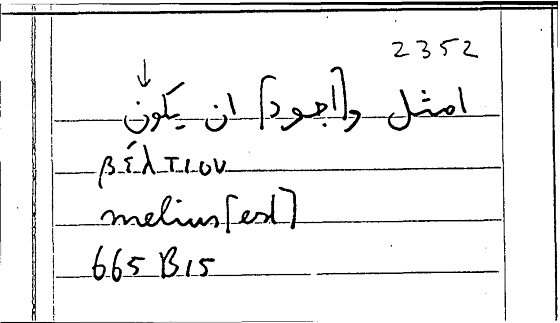 2352
امثل و[اجود] ان يكون
βέλτιον
melius [est]
665 B 15